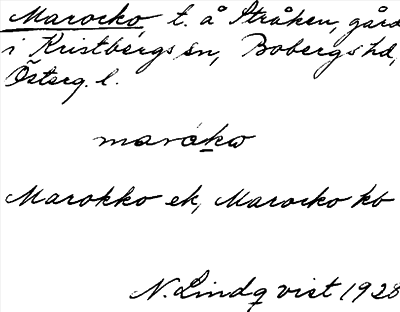 Marocko, t. å Stråken, gård
i Kristbergs sn, Bobergs hd,
Österg. l.
maroko
Marokko ek, Marocko kb
N. Lindqvist 1928